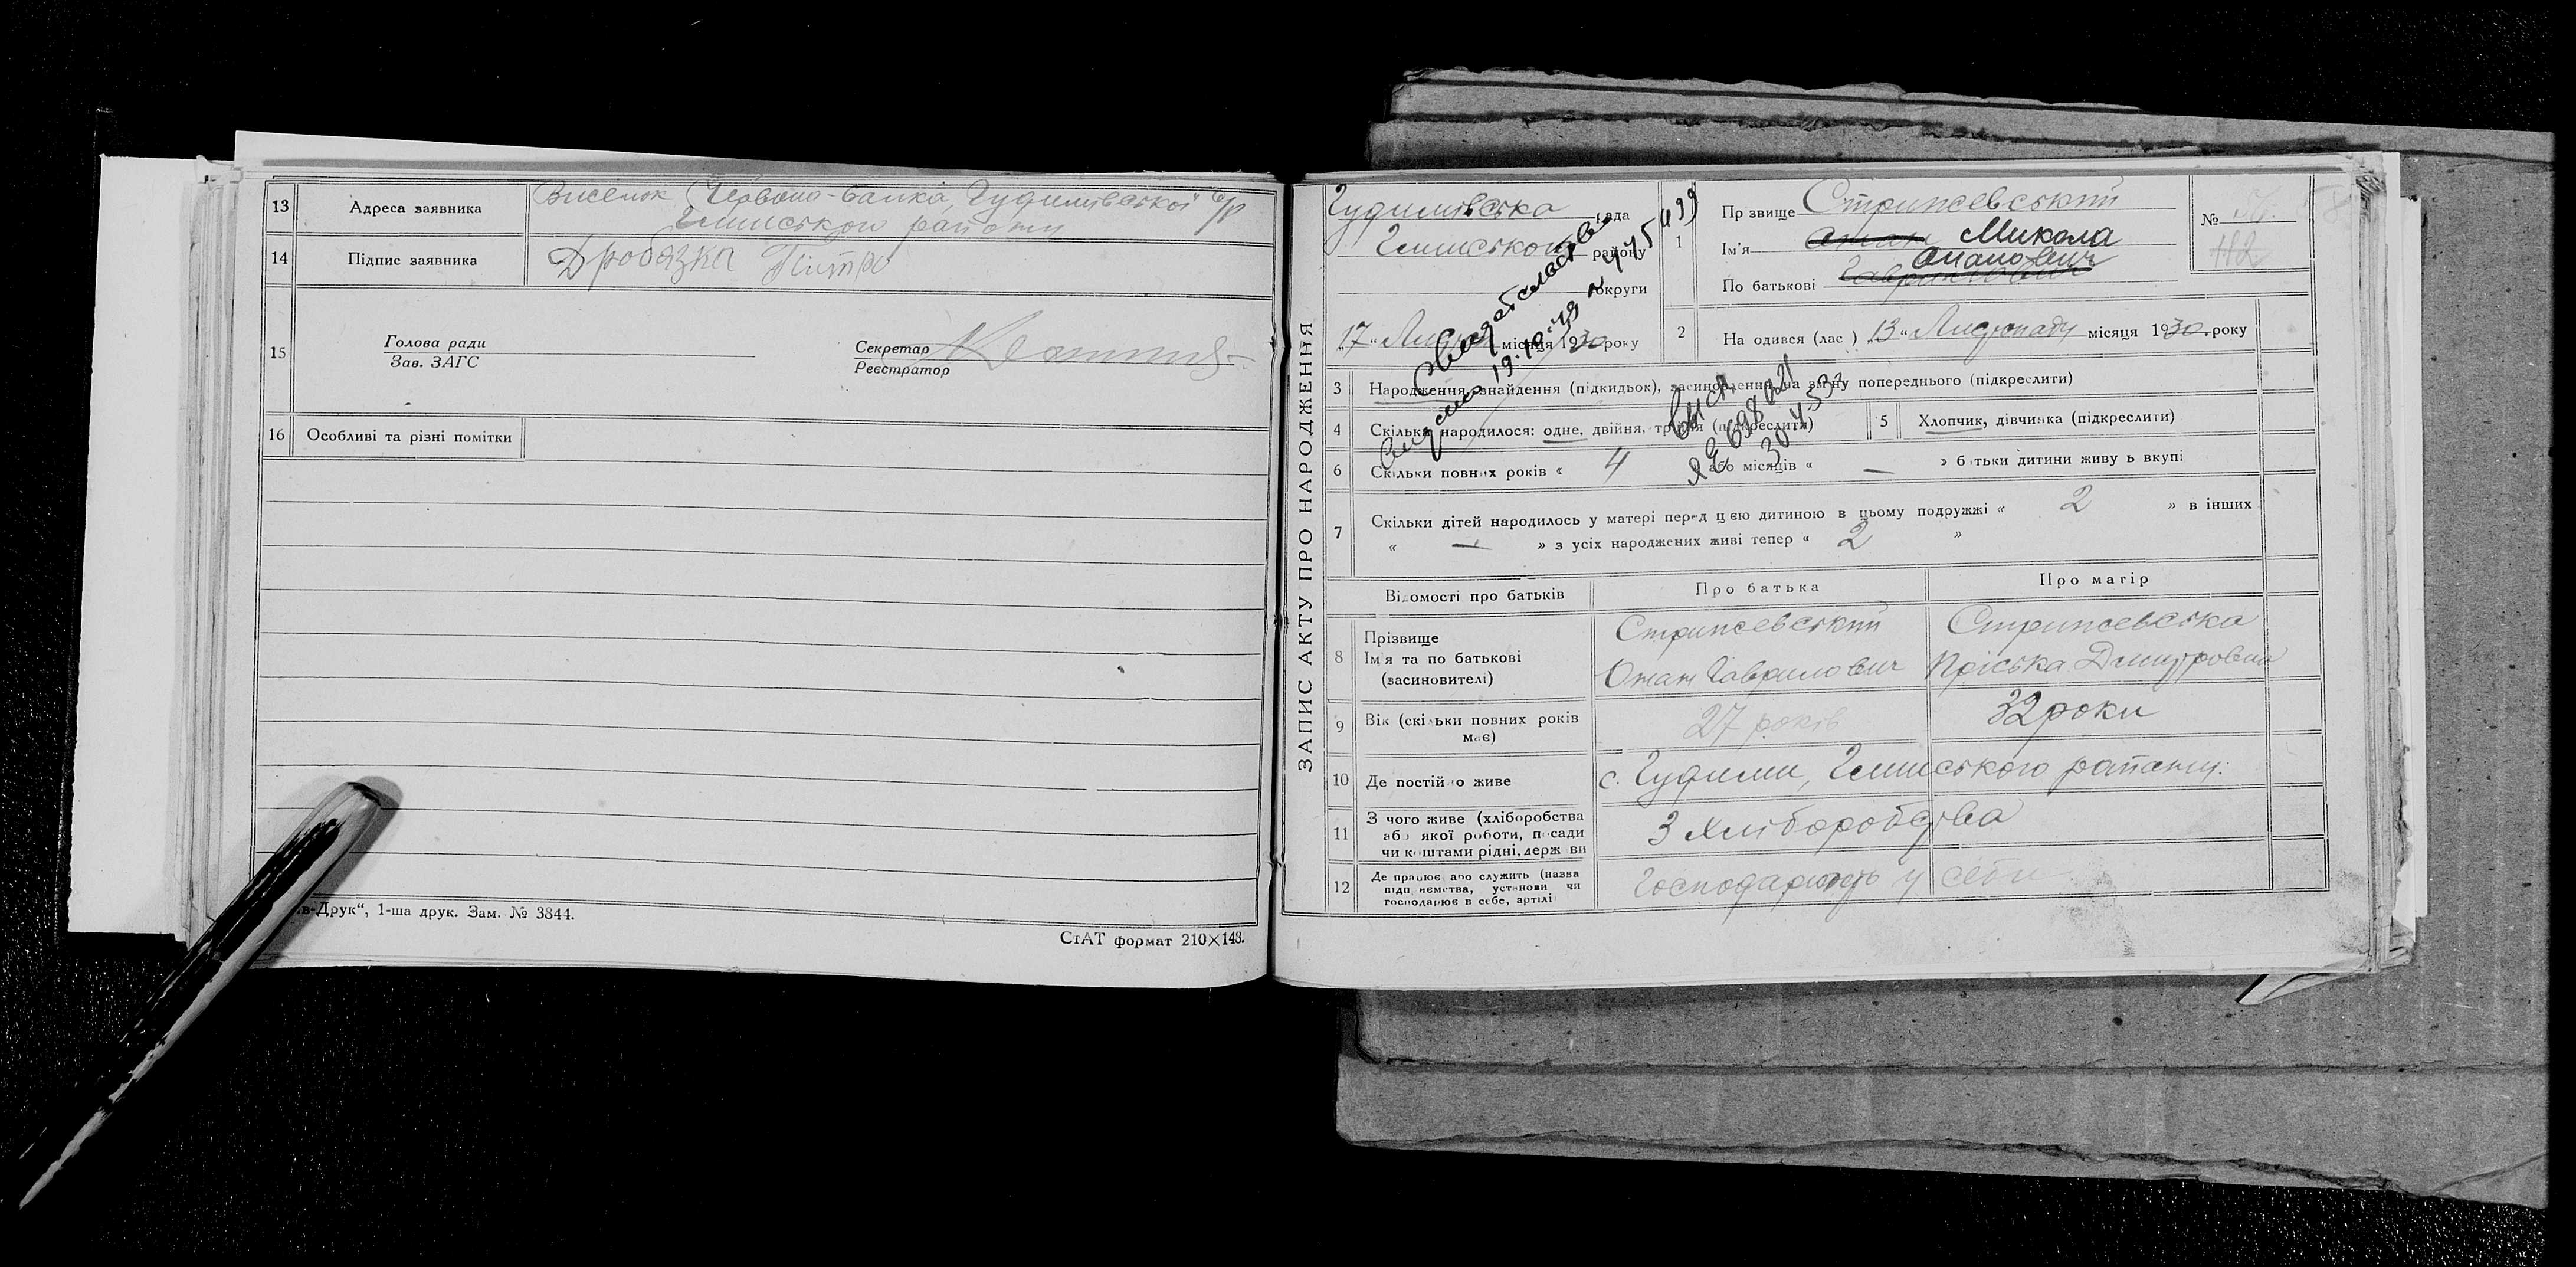 13 Адреса заявника Виселок Червона-балка, Гудимівської с/р
Глинської району
14 Підпис заявника Дробязка Пітро
15 Голова ради
Зав. ЗАГС
Секретар
Реєстратор
16 Особливі та різні помітки
в-Друк“, 1-ша друк. Зам. № 3844.
СтАТ формат 210×148.
ЗАПИС АКТУ ПРО НАРОДЖЕННЯ
Гудимівська рада
району
округи
„17“ місяця 1930 року
1 Прізвище Стрижевський
Ім'я Микола
По батькові Опанович
№
112
2 На одився (лас ) „13“ Листопаду місяця 1930. року
Свидетельство
выдано 19.10.49
выд
30 4 53
3 Народження, знайдення (підкидьок), засиновлення на зміну попереднього (підкреслити)
4 Скільки народилося: одне, двійня, трійня (підкреслити)
5 Хлопчик, дівчинка (підкреслити)
6 Скільки повних років « 4 або місяців « — » батьки дитини живуть вкупі
7 Скільки дітей народилось у матері перед цією дитиною в цьому подружжі « 2 » в інших
« — » з усіх народжених живі тепер « 2 »
Відомості про батьків Про батька Про матір
8 Прізвище
Ім'я та по батькові
(засиновителі)
Стрижевський
Опан Гаврилович
Стрижевська
Пріська Дмитровна
9 Вік (скільки повних років
має)
27 років 32 роки
10 Де постійно живе с. Гудими, Глинського району.
11 З чого живе (хліборобства
або якої роботи, посади
чи коштами рідні, держави
З хліборобства
12 Де працює або служить (назва
підприємства, установи чи
господарює в себе, артілі
Господарюють у себи